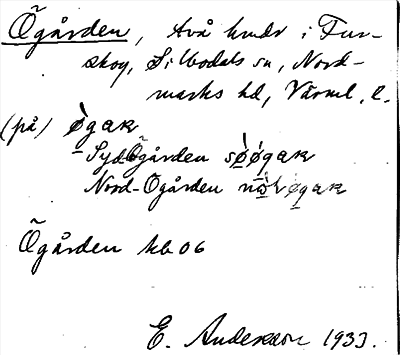 Ögården, två hmdr i Fur-
skog, Silbodals sn, Nord-
marks hd, Värml. l.
(på) ø̀gaʀ
Syd-Ögården sø̀ø̀gaʀ
Nord-Ögården
Ögården kb 06
E. Andersson 1933.